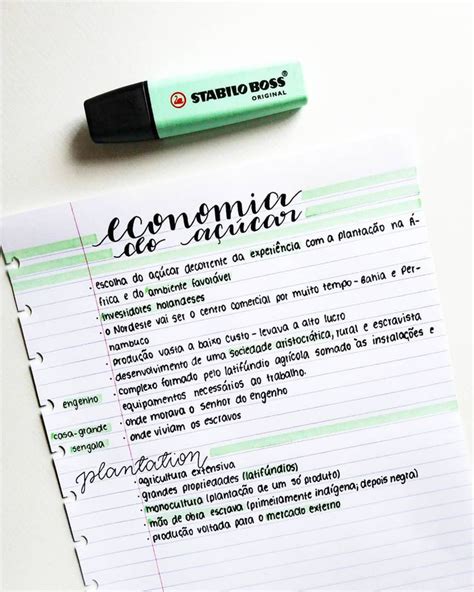 STABILO BOSS
ORIGINAL
economia
do açúcar
· escolha do açúcar decorrente da experiência com a plantação na Á-
frica e do ambiente favorável
· investidores holandeses
· o Nordeste vai ser o centro comercial por muito tempo - Bahia e Per-
nambuco
· produção vasta a baixo custo - levava a alto lucro
· desenvolvimento de uma sociedade aristocrática, rural e escravista
engenho · complexo formado pelo latifúndio agrícola somado às instalações e
equipamentos necessários ao trabalho.
casa-grande · onde morava o senhor do engenho
sengala · onde viviam os escravos
plantation
· agricultura extensiva
· grandes propriedades (latifúndios)
· monocultura (plantação de um só produto)
· mão de obra escrava (primeiramente indígena, depois negra)
· produção voltada para o mercado externo